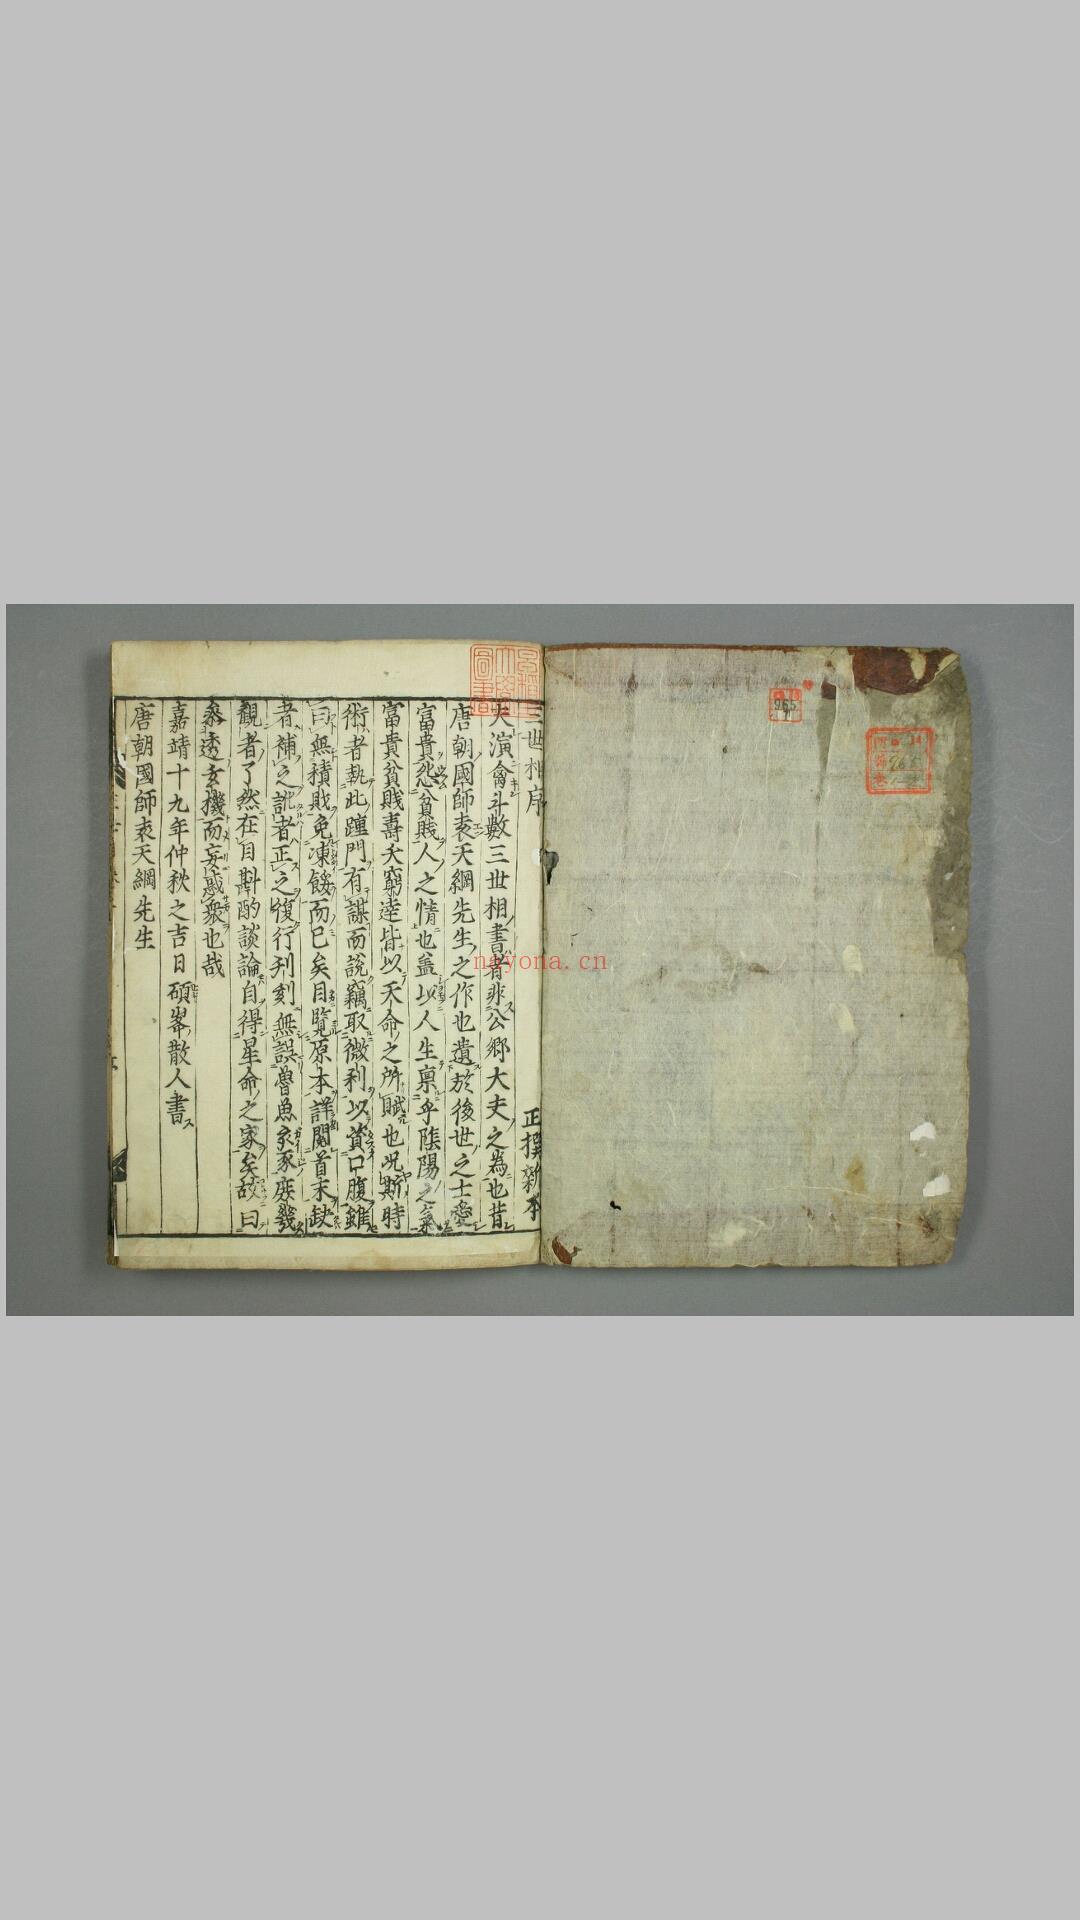 三世相序 正撰新本
大演禽斗數三世相書者非公卿大夫之為也昔
唐朝國師袁天綱先生之作也遺於後世之士愛
富貴怨貧賎人之情也盖以人生禀乎陰陽之氣
富貴貧賎壽夭窮達皆以天命之所賦也况斯時
術者執此踵門有謀而說竊取微利以資口腹雖
曰無積財免凍餒而已矣目覽原本詳閱首末缺
者補之訛者正之復行刋刻無誤魯魚亥豕庻幾
觀者了然在目斟酌談論自得星命之家矣故曰
叅透玄機而妄惑衆也哉
嘉靖十九年仲秋之吉日碩峯散人書
唐朝國師袁天綱先生
965
nayona.cn